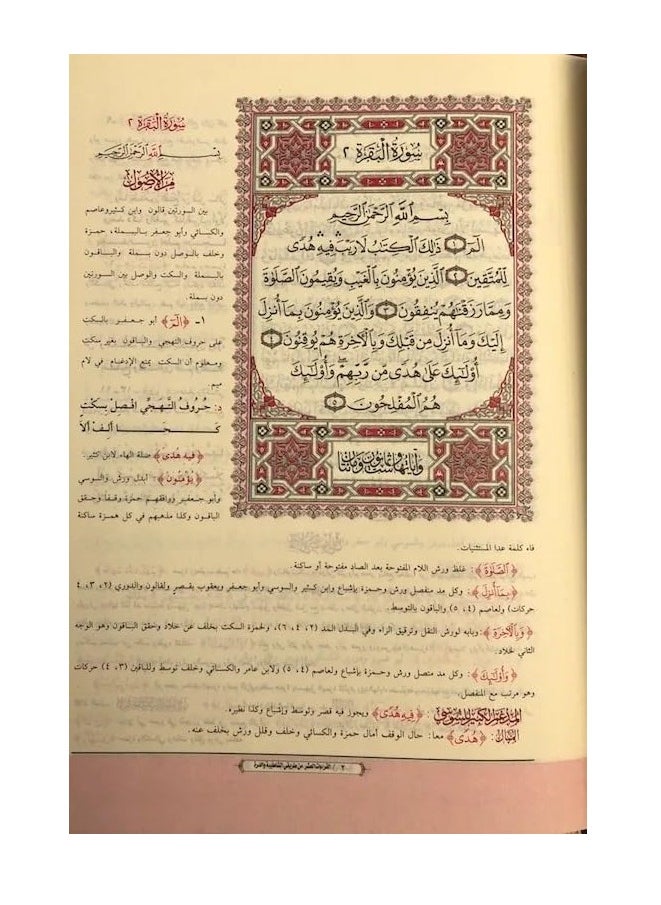 سُورَةُ الْبَقَرَةِ ٢
بِسْمِ ٱللَّهِ ٱلرَّحْمَٰنِ ٱلرَّحِيمِ
الٓمٓ ١ ذَٰلِكَ ٱلْكِتَٰبُ لَا رَيْبَ ۛ فِيهِ ۛ هُدًى
لِّلْمُتَّقِينَ ٢ ٱلَّذِينَ يُؤْمِنُونَ بِٱلْغَيْبِ وَيُقِيمُونَ ٱلصَّلَوٰةَ
وَمِمَّا رَزَقْنَٰهُمْ يُنفِقُونَ ٣ وَٱلَّذِينَ يُؤْمِنُونَ بِمَآ أُنزِلَ
إِلَيْكَ وَمَآ أُنزِلَ مِن قَبْلِكَ وَبِٱلْءَاخِرَةِ هُمْ يُوقِنُونَ ٤
أُو۟لَٰٓئِكَ عَلَىٰ هُدًى مِّن رَّبِّهِمْ ۖ وَأُو۟لَٰٓئِكَ
هُمُ ٱلْمُفْلِحُونَ ٥
وآياتها ست وثمانون ومائتان
سُورَةُ الْبَقَرَةِ ٢
بِسْمِ ٱللَّهِ ٱلرَّحْمَٰنِ ٱلرَّحِيمِ
من الأصول
بين السورتين قالون وابن كثير وعاصم
والكسائي وأبو جعفر بالبسملة، حمزة
وخلف بالوصل دون بسملة والباقون
بالبسملة والسكت والوصل بين السورتين
دون بسملة.
١- ﴿الٓمٓ﴾ أبو جعفر بالسكت
على حروف التهجي والباقون بغير سكت
ومعلوم أن السكت يمنع الإدغام في لام
ميم
د: حُرُوفُ التَّهَجِّي افْصِلْ بِسَكْتٍ
كَحَا أَلِفْ أَلَا
﴿فيه هدى﴾ صلة الهاء لابن كثير.
﴿يُؤْمِنُونَ﴾ أبدل ورش والسوسي
وأبو جعفر ووافقهم حمزة وقفاً وحقق
الباقون وكذا مذهبهم في كل همزة ساكنة
فاء كلمة عدا المستثنيات.
﴿الصَّلَوٰةَ﴾: غلظ ورش اللام المفتوحة بعد الصاد مفتوحة أو ساكنة.
﴿بِمَآ أُنزِلَ﴾: وكل مد منفصل ورش وحمزة بإشباع وابن كثير والسوسي وأبو جعفر ويعقوب بقصر ولقالون والدوري (٢، ٣، ٤
حركات) ولعاصم (٤، ٥) والباقون بالتوسط.
﴿وَبِٱلْءَاخِرَةِ﴾: وبابه لورش النقل وترقيق الراء وفي البدل المد (٢، ٤، ٦)، ولحمزة السكت بخلف عن خلاد وحقق الباقون وهو الوجه
الثاني لخلاد.
﴿وَأُو۟لَٰٓئِكَ﴾: وكل مد متصل ورش وحمزة بإشباع ولعاصم (٤، ٥) ولابن عامر والكسائي وخلف توسط وللباقين (٣، ٤) حركات
وهو مرتب مع المنفصل.
المدغم الكبير للسوسي: ﴿فِيهِ هُدًى﴾ ويجوز فيه قصر وتوسط وإشباع وكذا نظيره.
الممال: ﴿هُدًى﴾ معا: حال الوقف أمال حمزة والكسائي وخلف وقلل ورش بخلف عنه.
٢ / القراءات العشر من طريقي الشاطبية والدرة